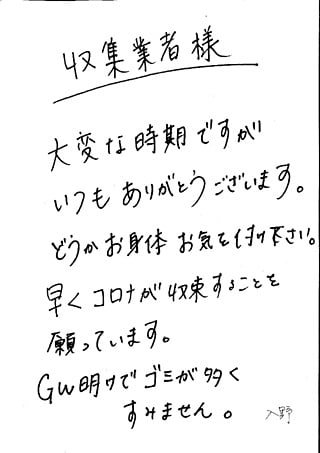 収集業者様
大変な時期ですが
いつもありがとうございます。
どうかお身体お気を付け下さい。
早くコロナが収束することを
願っています。
GW明けでゴミが多く
すみません。
入野